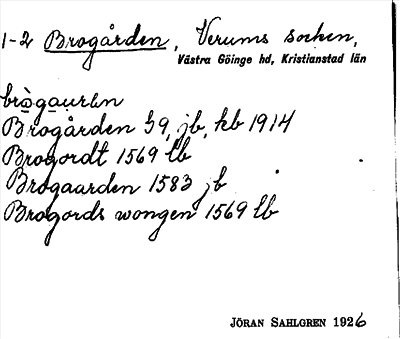 1-2 Brogården, Verums socken,
Västra Göinge hd, Kristianstad län
brògau̯ràn
Brogården 39, jb, kb 1914
Brogordt 1569 lb
Brogaarden 1583 jb
Brogords wongen 1569 lb
JÖRAN SAHLGREN 1926